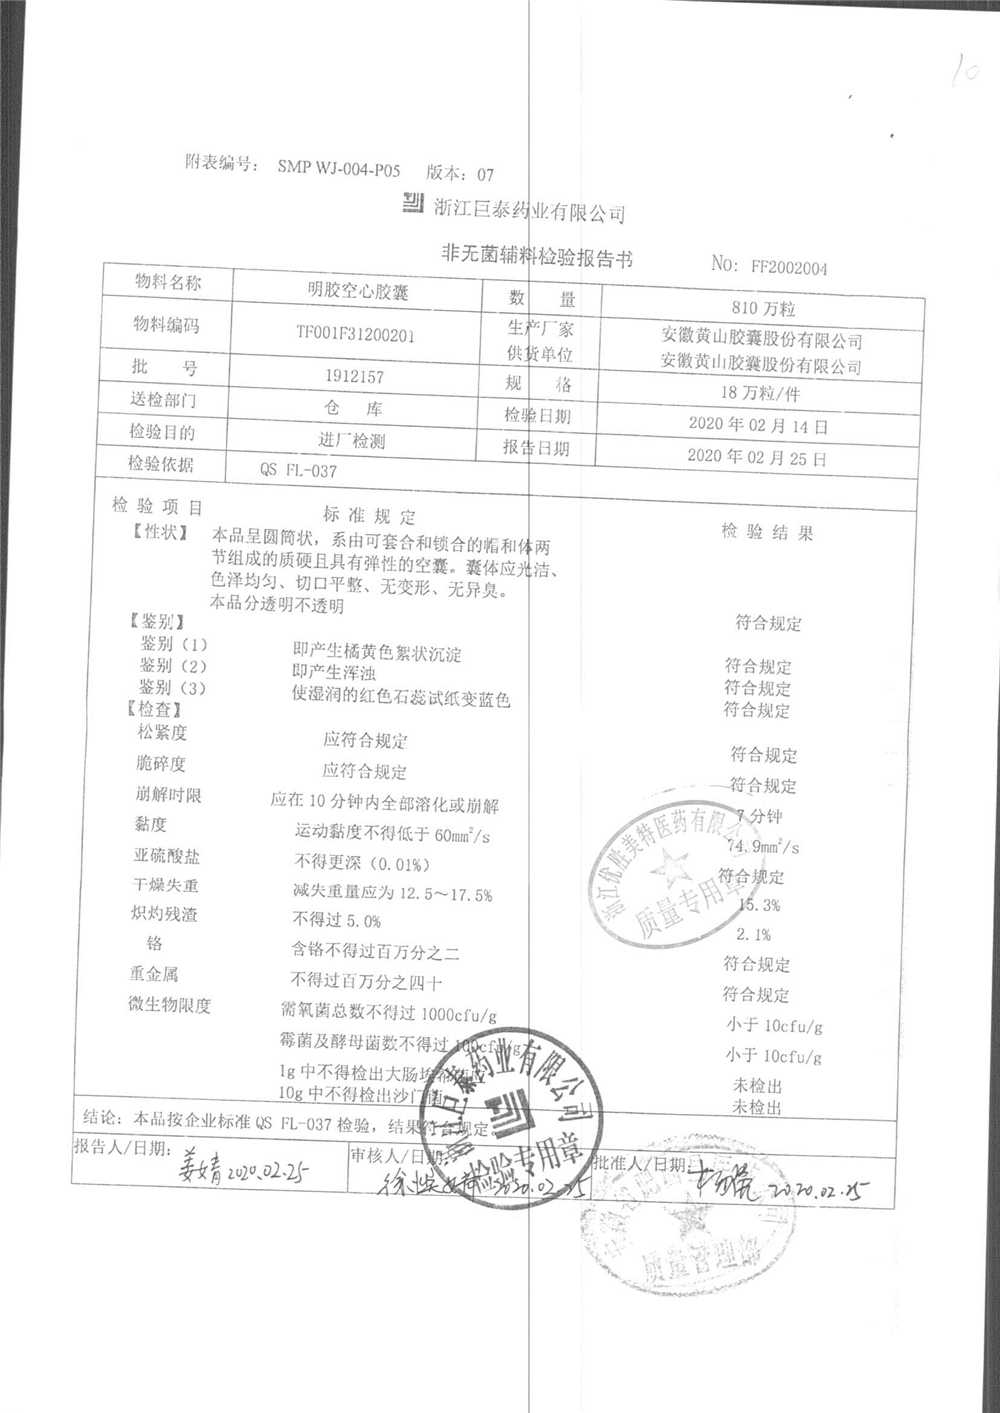 10
附表编号： SMP WJ-004-P05 版本：07
浙江巨泰药业有限公司
非无菌辅料检验报告书 NO：FF2002004
物料名称 明胶空心胶囊 数 量 810 万粒
物料编码 TF001F31200201 生产厂家 安徽黄山胶囊股份有限公司
供货单位 安徽黄山胶囊股份有限公司
批 号 1912157 规 格 18 万粒/件
送检部门 仓 库 检验日期 2020 年 02 月 14 日
检验目的 进厂检测 报告日期 2020 年 02 月 25 日
检验依据 QS FL-037
检 验 项 目 标 准 规 定 检 验 结 果
【性状】 本品呈圆筒状，系由可套合和锁合的帽和体两
节组成的质硬且具有弹性的空囊。囊体应光洁、
色泽均匀、切口平整、无变形、无异臭。
本品分透明不透明 符合规定
【鉴别】
鉴别（1） 即产生橘黄色絮状沉淀 符合规定
鉴别（2） 即产生浑浊 符合规定
鉴别（3） 使湿润的红色石蕊试纸变蓝色 符合规定
【检查】
松紧度 应符合规定 符合规定
脆碎度 应符合规定 符合规定
崩解时限 应在 10 分钟内全部溶化或崩解 7 分钟
黏度 运动黏度不得低于 60mm²/s 74.9mm²/s
亚硫酸盐 不得更深（0.01%） 符合规定
干燥失重 减失重量应为 12.5～17.5% 15.3%
炽灼残渣 不得过 5.0% 2.1%
铬 含铬不得过百万分之二 符合规定
重金属 不得过百万分之四十 符合规定
微生物限度 需氧菌总数不得过 1000cfu/g 小于 10cfu/g
霉菌及酵母菌数不得过 100cfu/g 小于 10cfu/g
1g 中不得检出大肠埃希菌 未检出
10g 中不得检出沙门菌 未检出
浙江优胜美特医药有限公司
质量专用章
结论：本品按企业标准 QS FL-037 检验，结果符合规定。
浙江巨泰药业有限公司
检验专用章
报告人/日期： 姜婧 2020.02.25 审核人/日期： 2020.02.25 批准人/日期： 2020.02.25
质量管理部